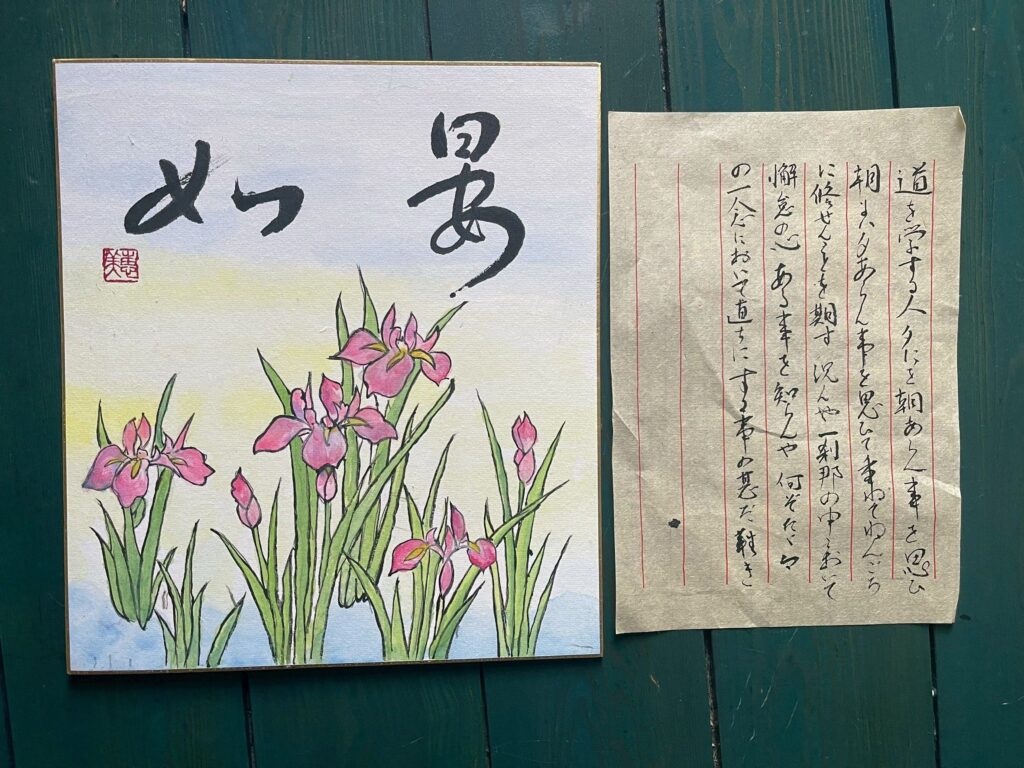 晏如
恵美
道を学する人 夕には朝あらん事を思ひ
朝には夕あらん事を思ひて重ねてねんごろ
に修せんことを期す 況んや一刹那の中において
懈怠の心ある事を知らんや 何ぞたゞ今
の一念において直ちにする事の甚だ難き